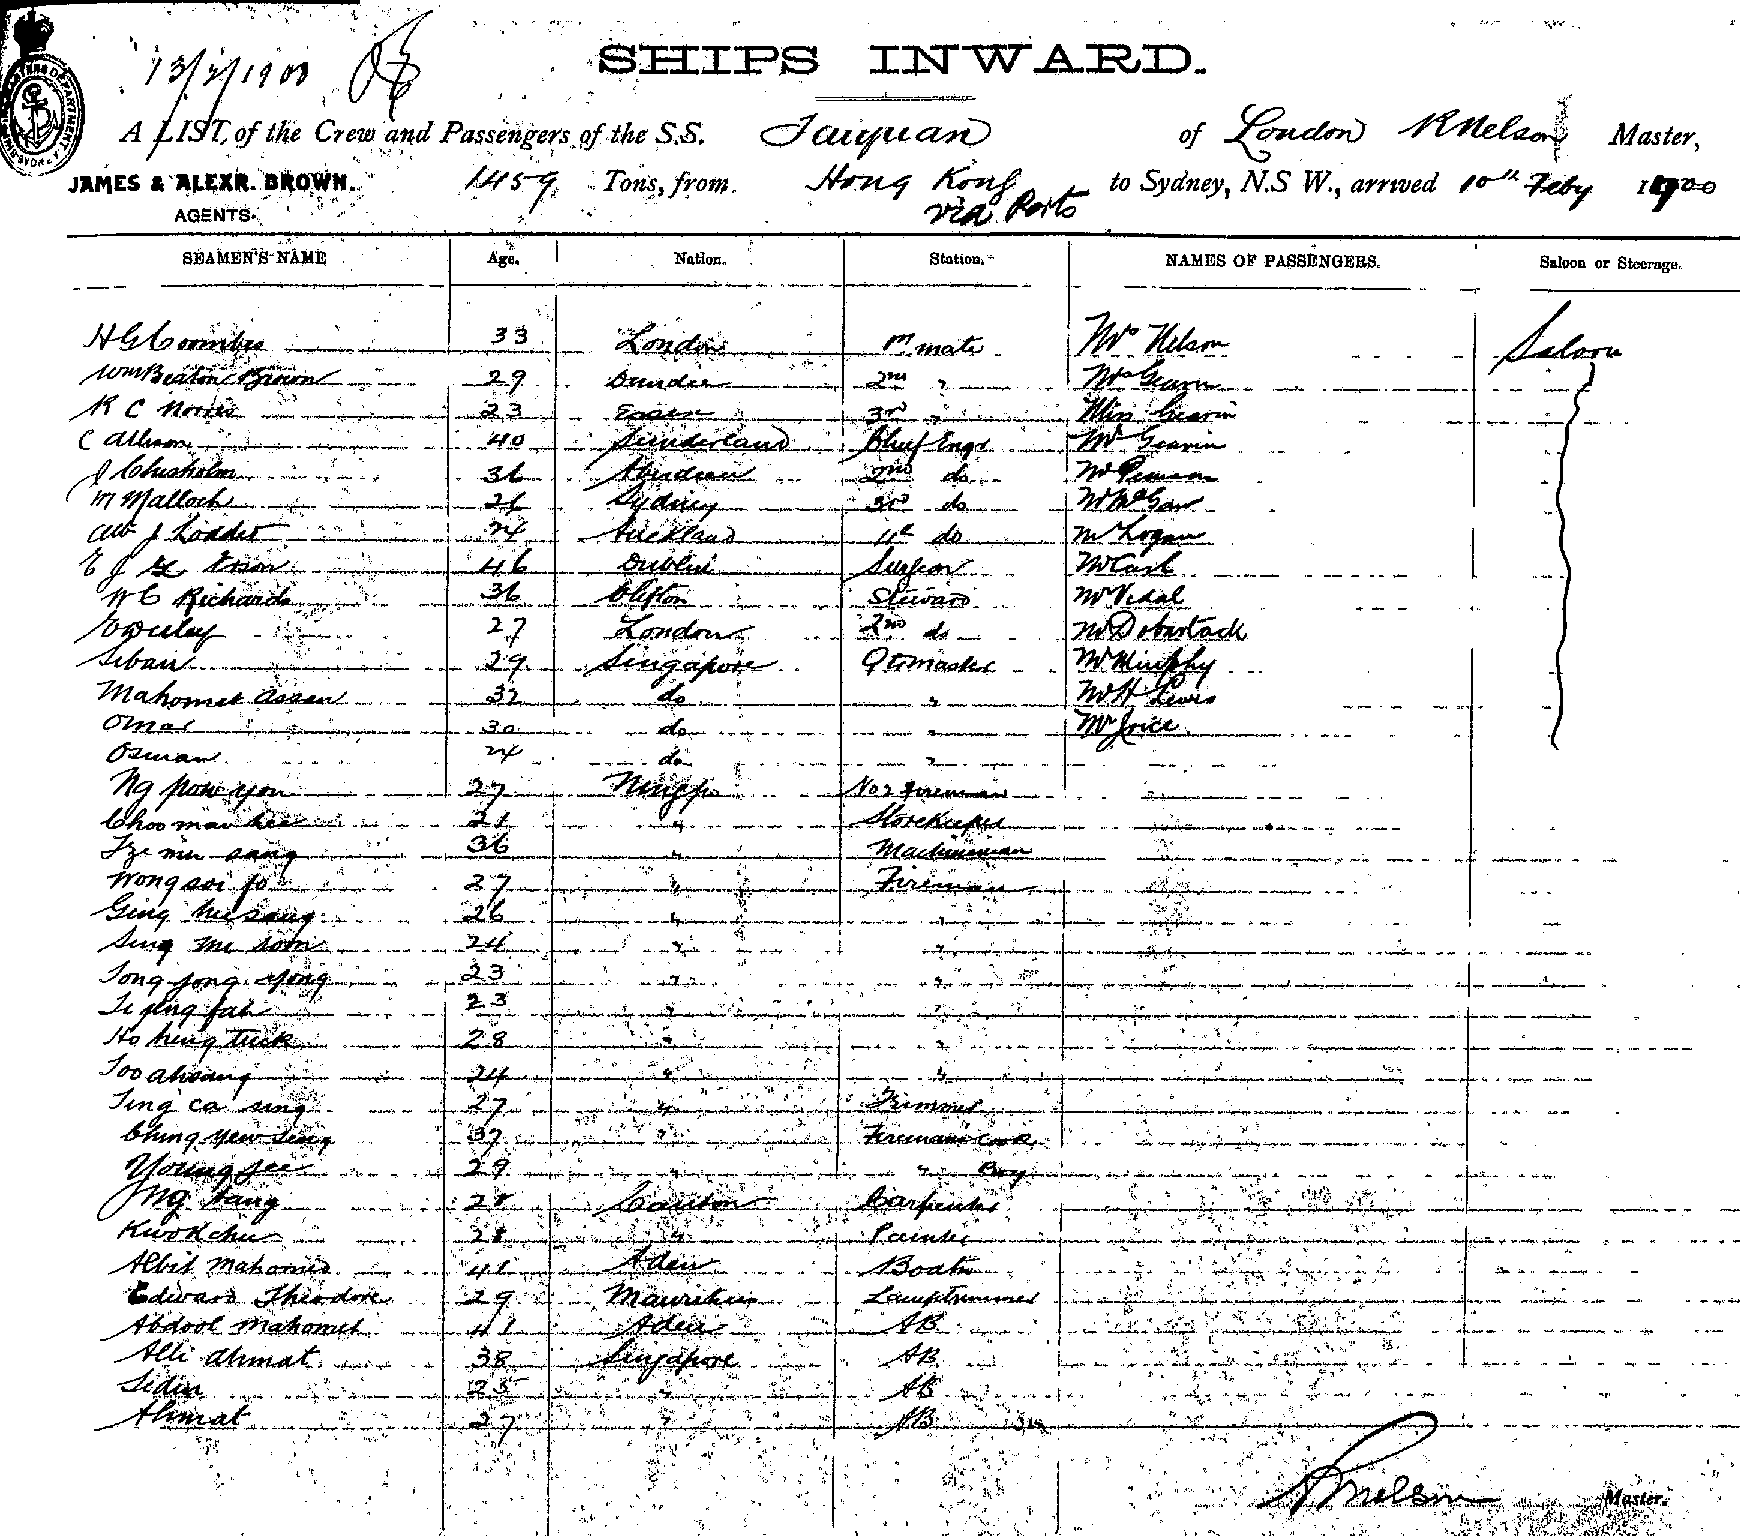 13/2/1900
SHIPS INWARD.
A LIST, of the Crew and Passengers of the S.S. Taiyuan of London R Nelson Master,
JAMES & ALEXR. BROWN. 1459 Tons, from Hong Kong to Sydney, N.S W., arrived 10th Feby 1900
AGENTS. via Ports
SEAMEN'S NAME Age. Nation. Station. NAMES OF PASSENGERS. Saloon or Steerage.
H G Coombes 33 London 1st mate Mrs Nelson Saloon
Wm Beaton Brown 29 Dundee 2nd "
R C Norris 23 Essex 3rd " Miss
C Allison 40 Sunderland Chief Engr Mr
J Chisholm 36 Aberdeen 2nd do Mr Pearson
M Malloch 26 Sydney 3rd do Mr McGaw
J Lodder 24 Auckland 4th do Mr Logan
E J 46 Dublin Surgeon Mr Cash
W C Richards 36 Clifton Steward Mr Vidal
27 London 2nd do Mr
Sibair 29 Singapore Qtrmaster Mr Murphy
Mahomet Assan 32 do " Mr H Lewis
Omar 30 do " Mr Joice
Osman 24 do "
Ng pow yon 27 Ningpo No 2 fireman
Choo mau hee 21 " Storekeeper
Tze miu sang 36 " Machineman
Wong soi fo 27 " Fireman
Ging hee sang 26 " "
Sing mi soon 24 " "
Tong jong yong 23 " "
23 " "
Ho hing tuck 28 " "
Too ahsang 24 " "
Ting ca sing 27 " Trimmer
Ching yew sing 37 " Firemans cook
Young see 29 " " Boy
Ng kang 28 Canton Carpenter
Kwok chu 28 " Painter
Albit Mahomed 41 Aden Boatn
Edward Theodore 29 Mauritius Lamptrimmer
Abdool Mahomet 41 Aden AB
Alli Ahmat 38 Singapore AB
Sedin 25 " AB
Ahmat 27 " AB
R Nelson Master.